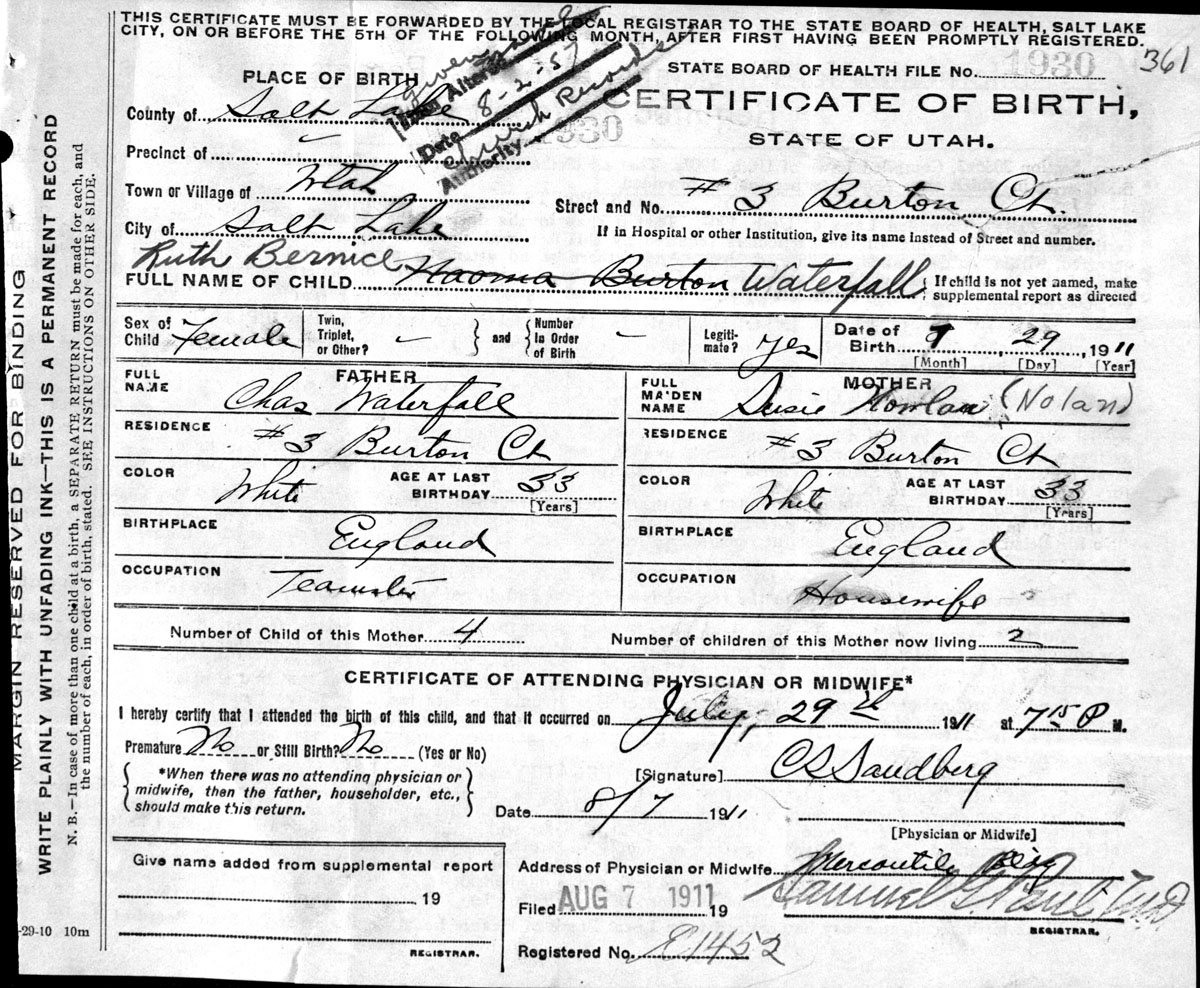 THIS CERTIFICATE MUST BE FORWARDED BY THE LOCAL REGISTRAR TO THE STATE BOARD OF HEALTH, SALT LAKE
CITY, ON OR BEFORE THE 5TH OF THE FOLLOWING MONTH, AFTER FIRST HAVING BEEN PROMPTLY REGISTERED.
361
STATE BOARD OF HEALTH FILE No. 1930
Date 8-2-57
Church Records
Authority
1930
PLACE OF BIRTH
CERTIFICATE OF BIRTH,
STATE OF UTAH.
County of Salt Lake
Precinct of —
Town or Village of Utah
Street and No. #3 Burton Ct.
City of Salt Lake
If in Hospital or other Institution, give its name instead of Street and number.
Ruth Bernice
FULL NAME OF CHILD Naoma Burton Waterfall
If child is not yet named, make
supplemental report as directed
Sex of Child Female
Twin, Triplet, or Other? —
and
Number In Order of Birth —
Legiti-mate? yes
Date of Birth 29, 1911
[Month] [Day] [Year]
FATHER
FULL NAME Chas Waterfall
RESIDENCE #3 Burton Ct
COLOR White
AGE AT LAST BIRTHDAY 33
[Years]
BIRTHPLACE England
OCCUPATION Teamster
MOTHER
FULL MAIDEN NAME Susie Nowlan (Nolan)
RESIDENCE #3 Burton Ct
COLOR White
AGE AT LAST BIRTHDAY 33
[Years]
BIRTHPLACE England
OCCUPATION Housewife
Number of Child of this Mother 4
Number of children of this Mother now living 2
CERTIFICATE OF ATTENDING PHYSICIAN OR MIDWIFE*
I hereby certify that I attended the birth of this child, and that it occurred on July, 29th 1911 at 7 15 P M.
Premature No or Still Birth? No (Yes or No)
*When there was no attending physician or
midwife, then the father, householder, etc.,
should make this return.
[Signature] CS Sandberg
Date 8/7 1911
[Physician or Midwife]
Give name added from supplemental report
19
REGISTRAR.
Address of Physician or Midwife Mercantile Bldg
Filed AUG 7 1911 19
Samuel G. Paul
REGISTRAR.
Registered No. E1452
MARGIN RESERVED FOR BINDING
WRITE PLAINLY WITH UNFADING INK—THIS IS A PERMANENT RECORD
N. B.—In case of more than one child at a birth, a SEPARATE RETURN must be made for each, and
the number of each, in order of birth, stated. SEE INSTRUCTIONS ON OTHER SIDE.
-29-10 10m